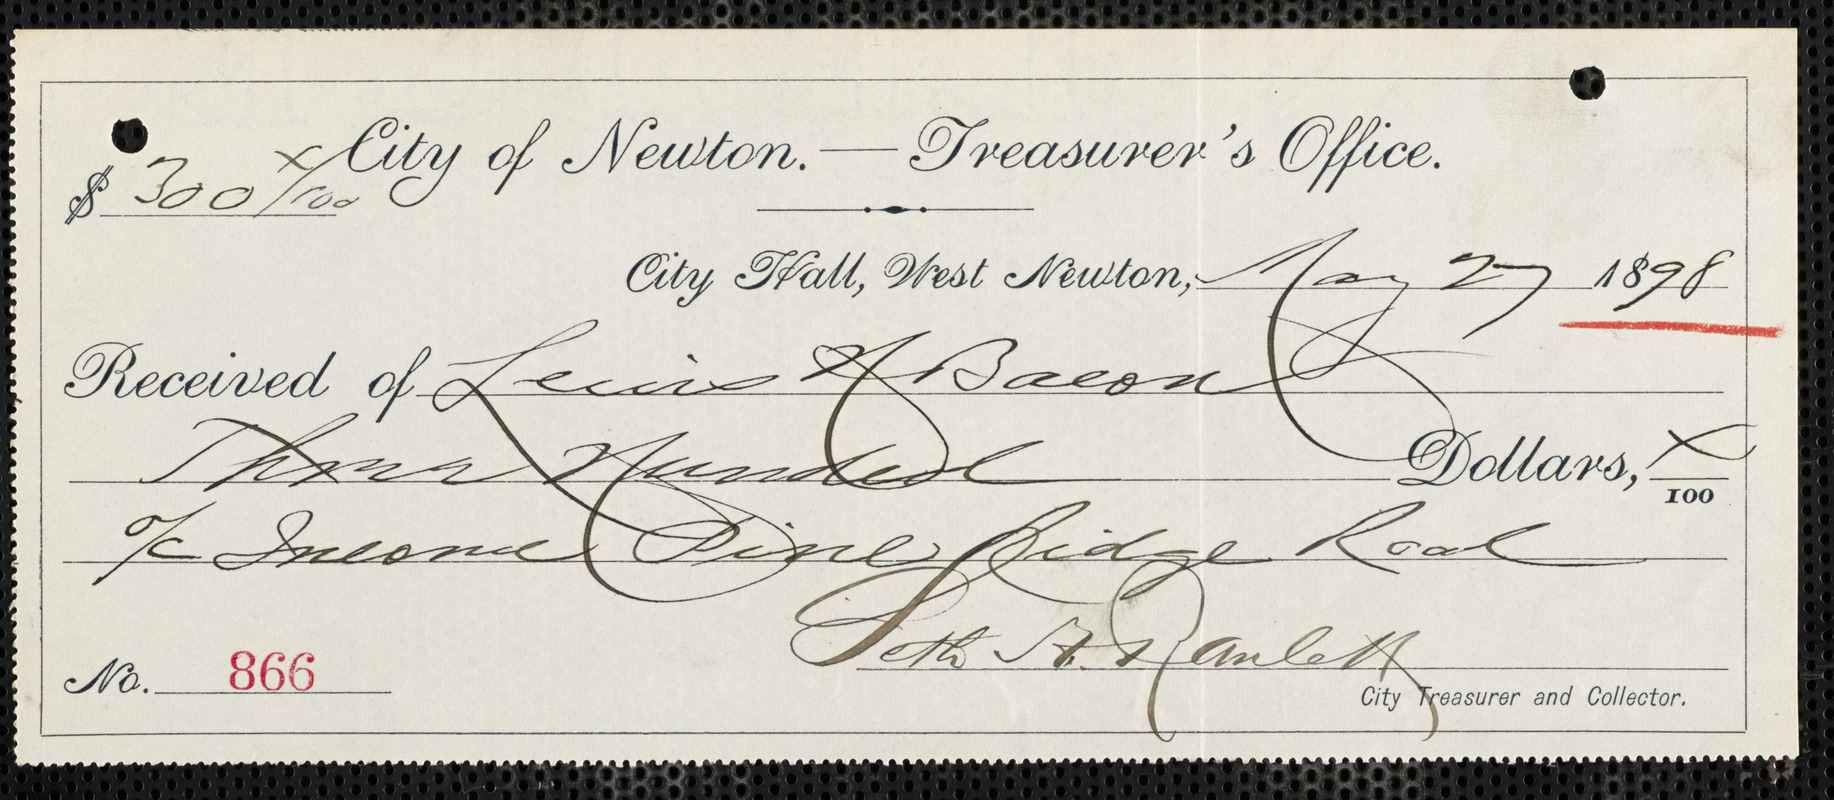 City of Newton. — Treasurer's Office.
$ 300 x/100
City Hall, West Newton, May 27 1898
Received of Lewis H Bacon
Three Hundred Dollars, x/100
a/c Income Pine Ridge Road
Seth A. Ranlett
City Treasurer and Collector.
No. 866